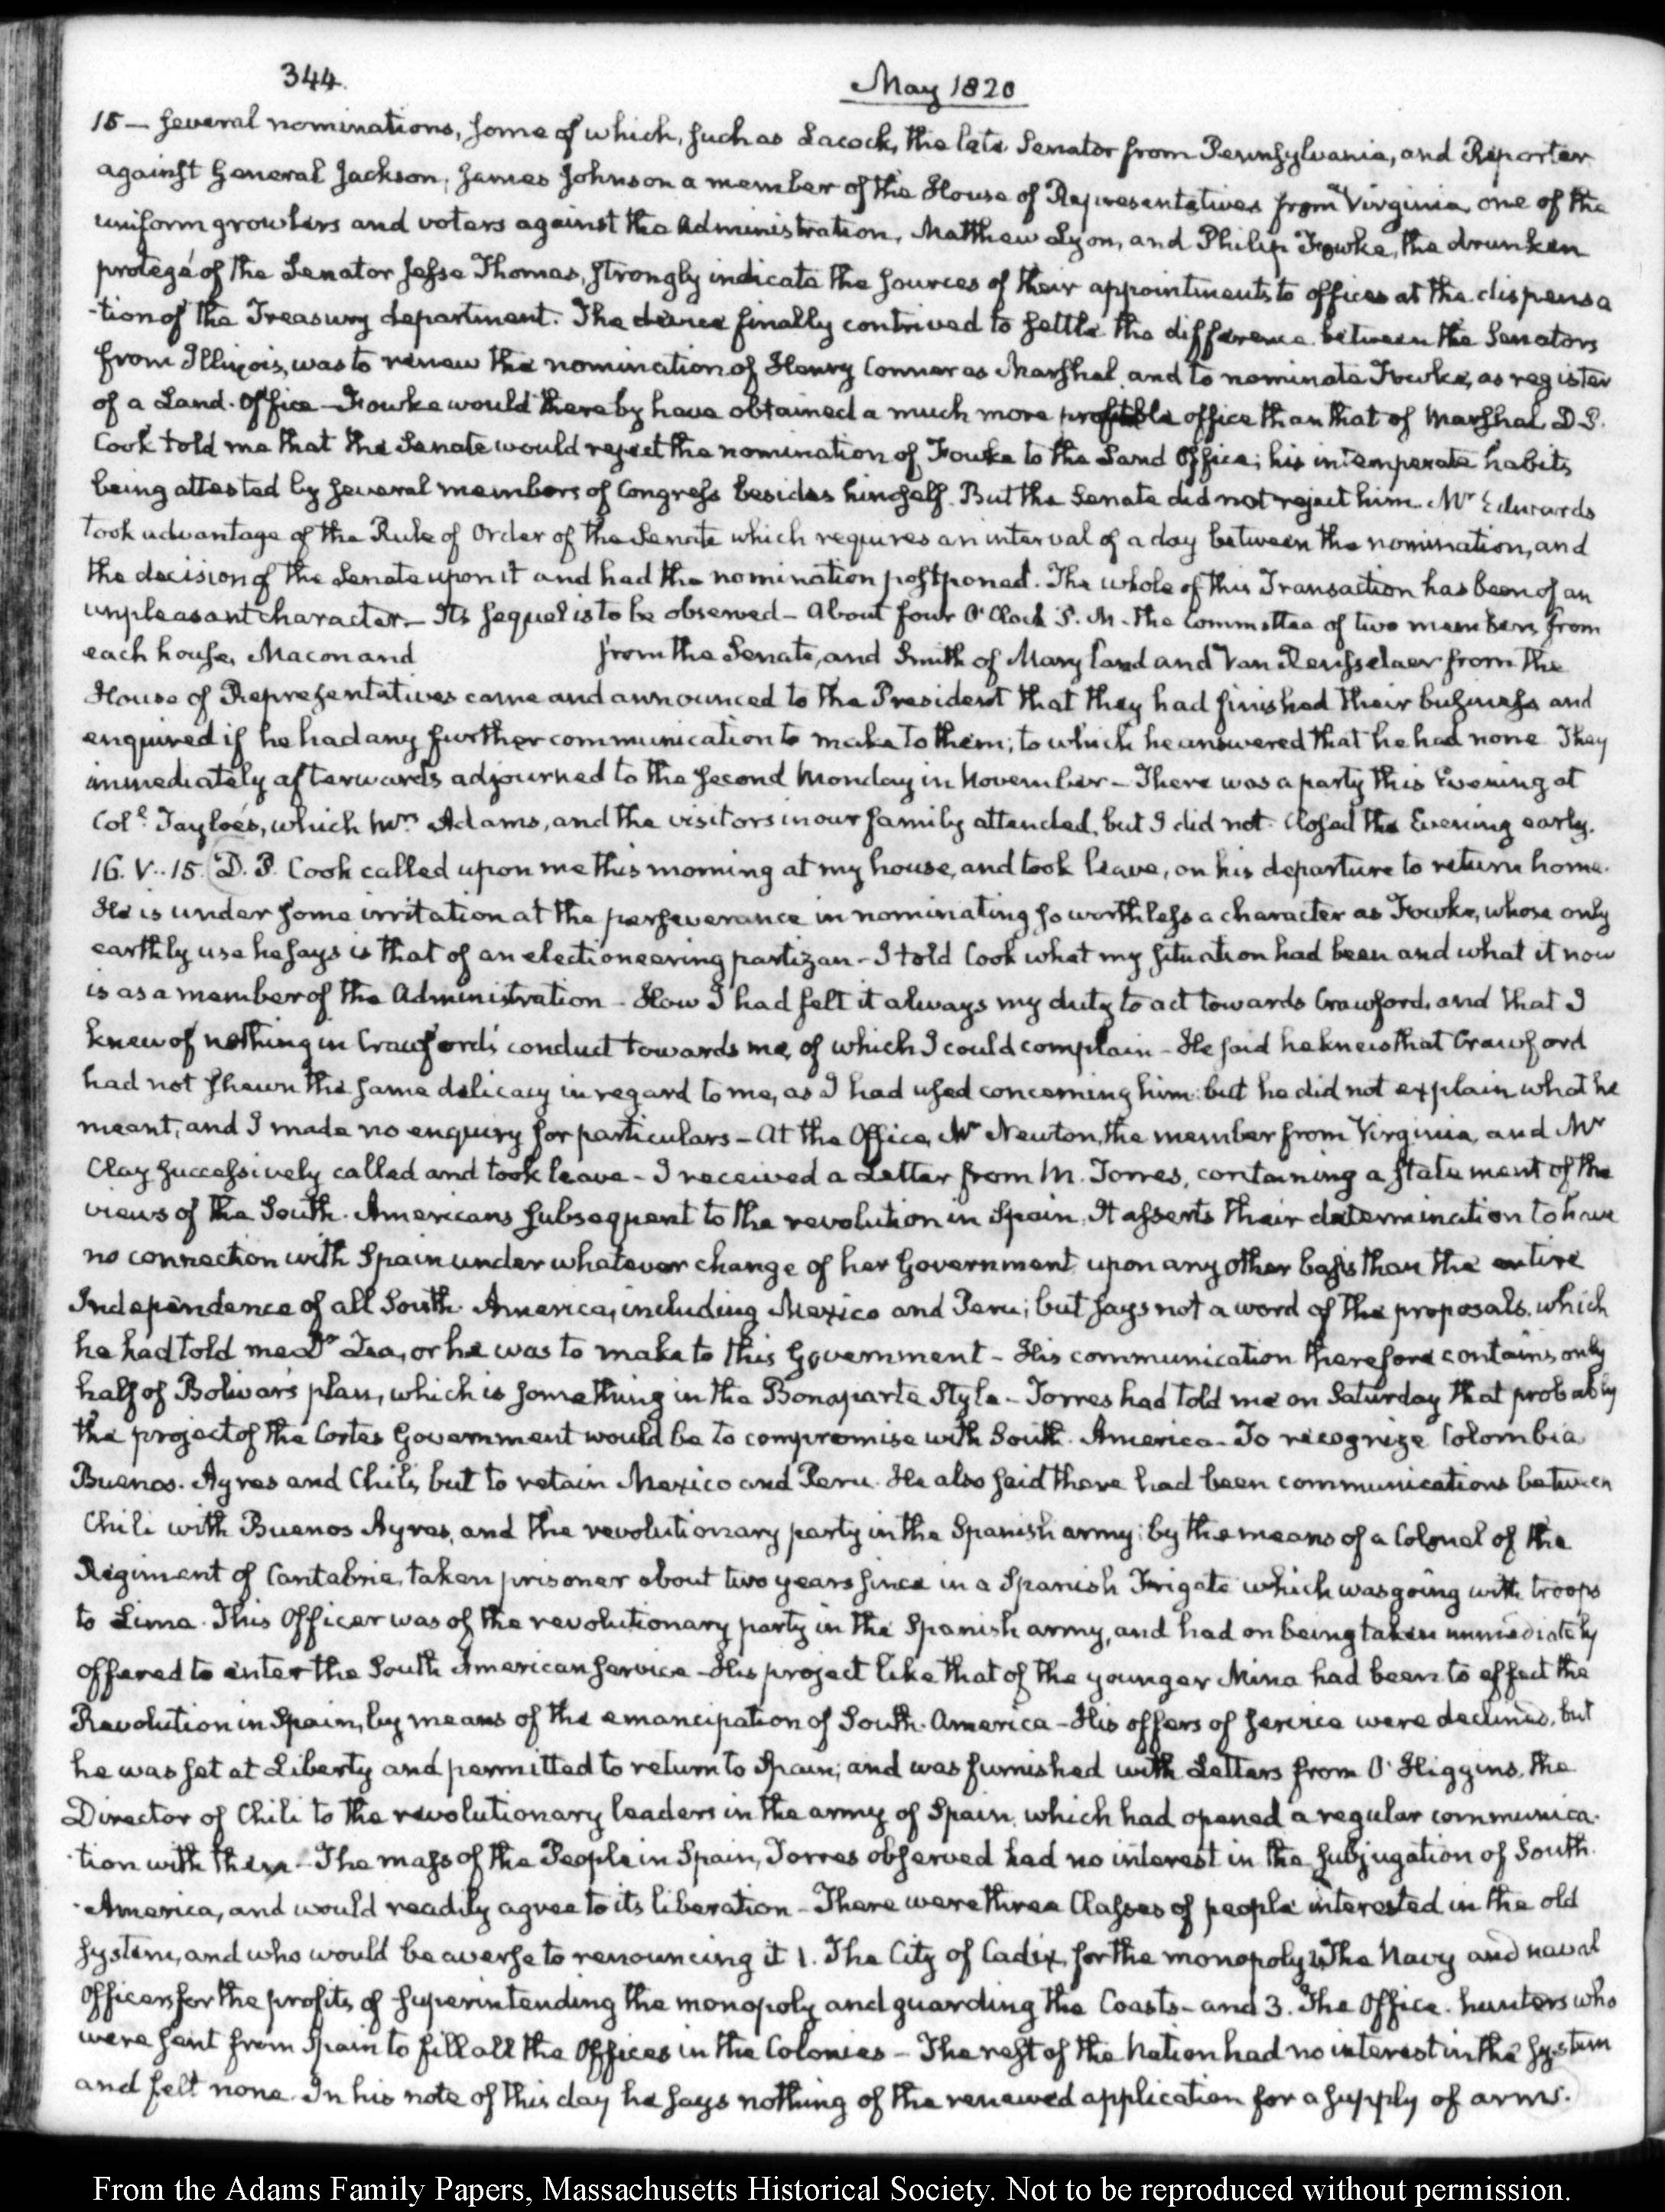 344.
May 1820
15 — Several nominations, some of which, such as Lacock, the late Senator from Pennsylvania, and Reporter
against General Jackson, James Johnson a member of the House of Representatives from Virginia, one of the
uniform growlers and voters against the Administration, Matthew Lyon, and Philip Fowke, the drunken
protegé of the Senator Jesse Thomas, strongly indicate the sources of their appointments to offices at the dispensa
-tion of the Treasury department. The device finally contrived to settle the difference between the Senators
from Illinois, was to renew the nomination of Henry Conner as Marshal, and to nominate Fowke, as register
of a Land-Office — Fowke would thereby have obtained a much more profitable office than that of Marshal. D. P.
Cook told me that the Senate would reject the nomination of Fowke to the Land Office; his intemperate habits
being attested by several members of Congress besides himself. But the Senate did not reject him. Mr Edwards
took advantage of the Rule of Order of the Senate which requires an interval of a day between the nomination, and
the decision of the Senate upon it and had the nomination postponed. The whole of this Transaction has been of an
unpleasant character — Its sequel is to be observed — About four O'Clock P. M. the Committee of two members from
each house, Macon and from the Senate, and Smith of Maryland and Van Rensselaer from the
House of Representatives came and announced to the President that they had finished their business and
enquired if he had any further communication to make to them; to which he answered that he had none. They
immediately afterwards adjourned to the second Monday in November — There was a party this Evening at
Coll. Tayloe's, which Mrs. Adams, and the visitors in our family attended, but I did not. Closed the Evening early.
16. V..15. D. P. Cook called upon me this morning at my house, and took leave, on his departure to return home.
He is under some irritation at the perseverance in nominating so worthless a character as Fowke, whose only
earthly use he says is that of an electioneering partizan — I told Cook what my situation had been and what it now
is as a member of the Administration — How I had felt it always my duty to act towards Crawford, and that I
knew of nothing in Crawford's conduct towards me, of which I could complain — He said he knew that Crawford
had not shewn the same delicacy in regard to me, as I had used concerning him: but he did not explain what he
meant, and I made no enquiry for particulars — At the Office, Mr Newton, the member from Virginia, and Mr
Clay successively called and took leave — I received a Letter from M. Torres, containing a statement of the
views of the South-Americans subsequent to the revolution in Spain. It asserts their determination to have
no connection with Spain under whatever change of her Government, upon any other basis than the entire
Independence of all South-America, including Mexico and Peru; but says not a word of the proposals, which
he had told me Dr Zea, or he was to make to this Government — His communication therefore contains only
half of Bolivar's plan, which is something in the Bonaparte Style — Torres had told me on Saturday that probably
the project of the Cortes Government would be to compromise with South-America — To recognize Colombia
Buenos-Ayres and Chili, but to retain Mexico and Peru. He also said there had been communications between
Chili with Buenos Ayres, and the revolutionary party in the Spanish army; by the means of a Colonel of the
Regiment of Cantabria, taken prisoner about two years since in a Spanish Frigate which was going with troops
to Lima. This Officer was of the revolutionary party in the Spanish army, and had on being taken immediately
offered to enter the South American service — His project like that of the younger Mina had been to effect the
Revolution in Spain, by means of the emancipation of South-America — His offers of service were declined, but
he was set at Liberty and permitted to return to Spain; and was furnished with Letters from O'Higgins, the
Director of Chili to the revolutionary leaders in the army of Spain, which had opened a regular communica-
-tion with them — The mass of the People in Spain, Torres observed had no interest in the subjugation of South-
-America, and would readily agree to its liberation — There were three Classes of people interested in the old
system, and who would be averse to renouncing it 1. The City of Cadiz, for the monopoly 2. The Navy and naval
Officers for the profits of superintending the monopoly and guarding the Coasts — and 3. The Office-hunters who
were sent from Spain to fill all the Offices in the Colonies — The rest of the Nation had no interest in the System
and felt none. In his note of this day he says nothing of the renewed application for a supply of arms.
From the Adams Family Papers, Massachusetts Historical Society. Not to be reproduced without permission.